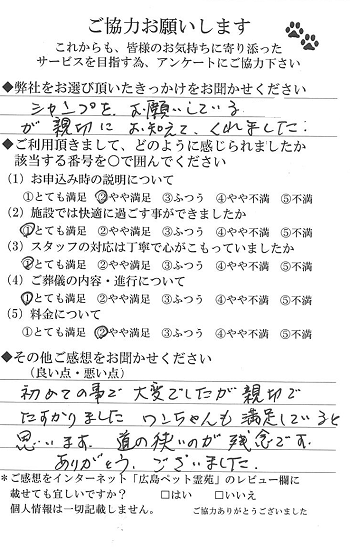 ご協力お願いします
これからも、皆様のお気持ちに寄り添った
サービスを目指す為、アンケートにご協力下さい
◆弊社をお選び頂いたきっかけをお聞かせください
シャンプを、お願いしている
が 親切に お知えて、くれました。
◆ご利用頂きまして、どのように感じられましたか
該当する番号を〇で囲んでください
(1) お申込み時の説明について
①とても満足 ②やや満足 ③ふつう ④やや不満 ⑤不満
(2) 施設では快適に過ごす事ができましたか
①とても満足 ②やや満足 ③ふつう ④やや不満 ⑤不満
(3) スタッフの対応は丁寧で心がこもっていましたか
①とても満足 ②やや満足 ③ふつう ④やや不満 ⑤不満
(4) ご葬儀の内容・進行について
①とても満足 ②やや満足 ③ふつう ④やや不満 ⑤不満
(5) 料金について
①とても満足 ②やや満足 ③ふつう ④やや不満 ⑤不満
◆その他ご感想をお聞かせください
(良い点・悪い点)
初めての事で 大変でしたが 親切で
たすかりました ワンちゃんも 満足していると
思います。道の狭いのが 残念です。
ありがとう、ございました。
*ご感想をインターネット「広島ペット霊苑」のレビュー欄に
載せても宜しいですか? □はい □いいえ
個人情報は一切記載しません。 ご協力ありがとうございました